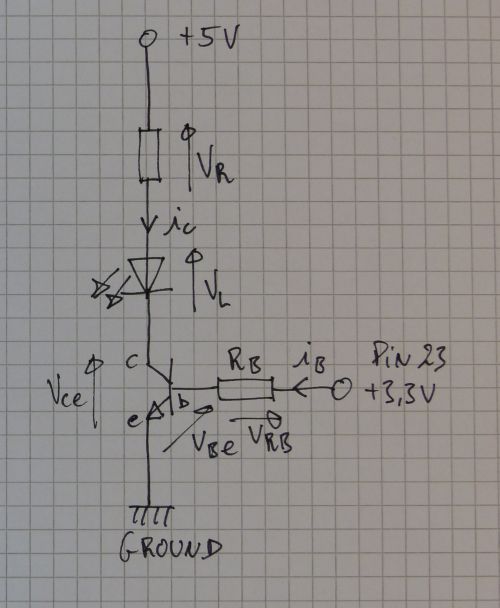 +5V
VR
ic
VL
c
RB
iB
Pin 23
+3,3V
Vce
b
e
VBe
VRB
GROUND